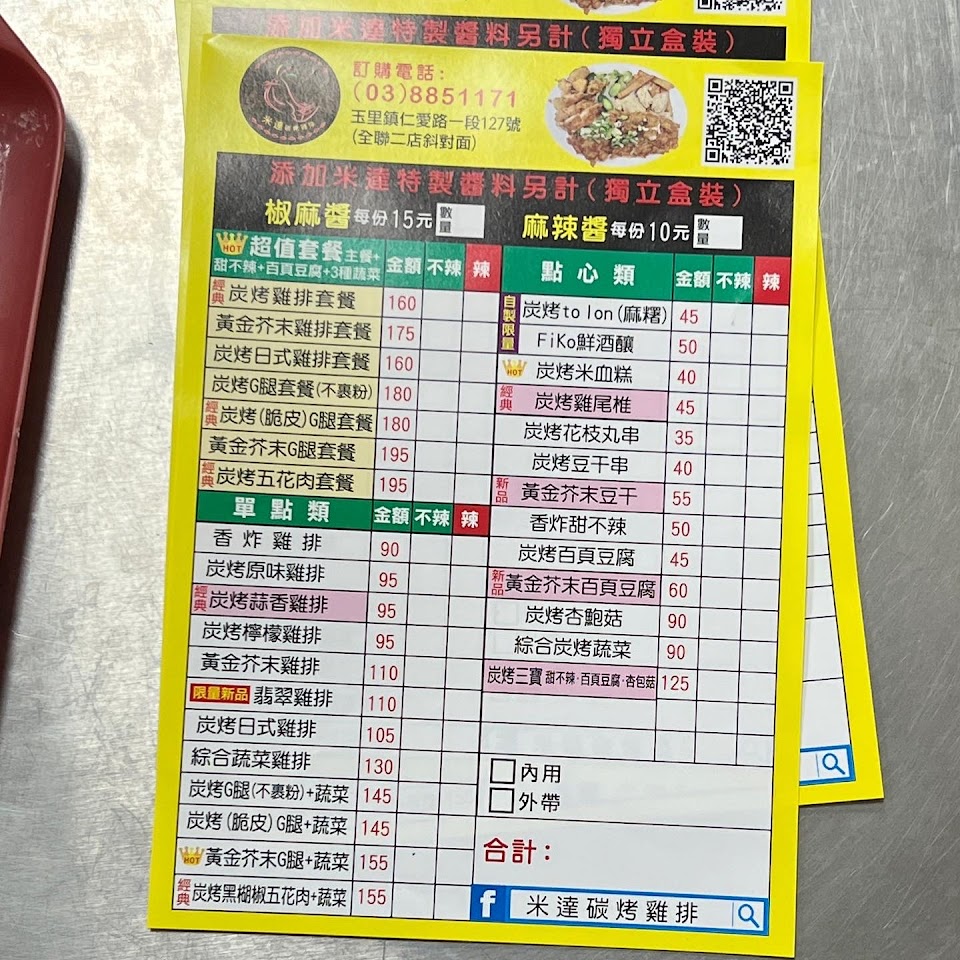 添加米達特製醬料另計(獨立盒裝)
米達
訂購電話:
(03)8851171
玉里鎮仁愛路一段127號
(全聯二店斜對面)
添加米達特製醬料另計(獨立盒裝)
椒麻醬 每份15元 數量
麻辣醬 每份10元 數量
HOT 超值套餐 主餐+
甜不辣+百頁豆腐+3種蔬菜 金額 不辣 辣
經典 炭烤雞排套餐 160
黃金芥末雞排套餐 175
炭烤日式雞排套餐 160
炭烤G腿套餐(不裹粉) 180
經典 炭烤(脆皮)G腿套餐 180
黃金芥末G腿套餐 195
經典 炭烤五花肉套餐 195
單點類 金額 不辣 辣
香炸雞排 90
炭烤原味雞排 95
經典 炭烤蒜香雞排 95
炭烤檸檬雞排 95
黃金芥末雞排 110
限量新品 翡翠雞排 110
炭烤日式雞排 105
綜合蔬菜雞排 130
炭烤G腿(不裹粉)+蔬菜 145
炭烤(脆皮)G腿+蔬菜 145
HOT 黃金芥末G腿+蔬菜 155
經典 炭烤黑楜椒五花肉+蔬菜 155
點心類 金額 不辣 辣
自製限量 炭烤tolon(麻糬) 45
FiKo鮮酒釀 50
HOT 炭烤米血糕 40
經典 炭烤雞尾椎 45
炭烤花枝丸串 35
炭烤豆干串 40
新品 黃金芥末豆干 55
香炸甜不辣 50
炭烤百頁豆腐 45
新品 黃金芥末百頁豆腐 60
炭烤杏鮑菇 90
綜合炭烤蔬菜 90
炭烤三寶 甜不辣·百頁豆腐·杏包菇 125
內用
外帶
合計:
f 米達碳烤雞排